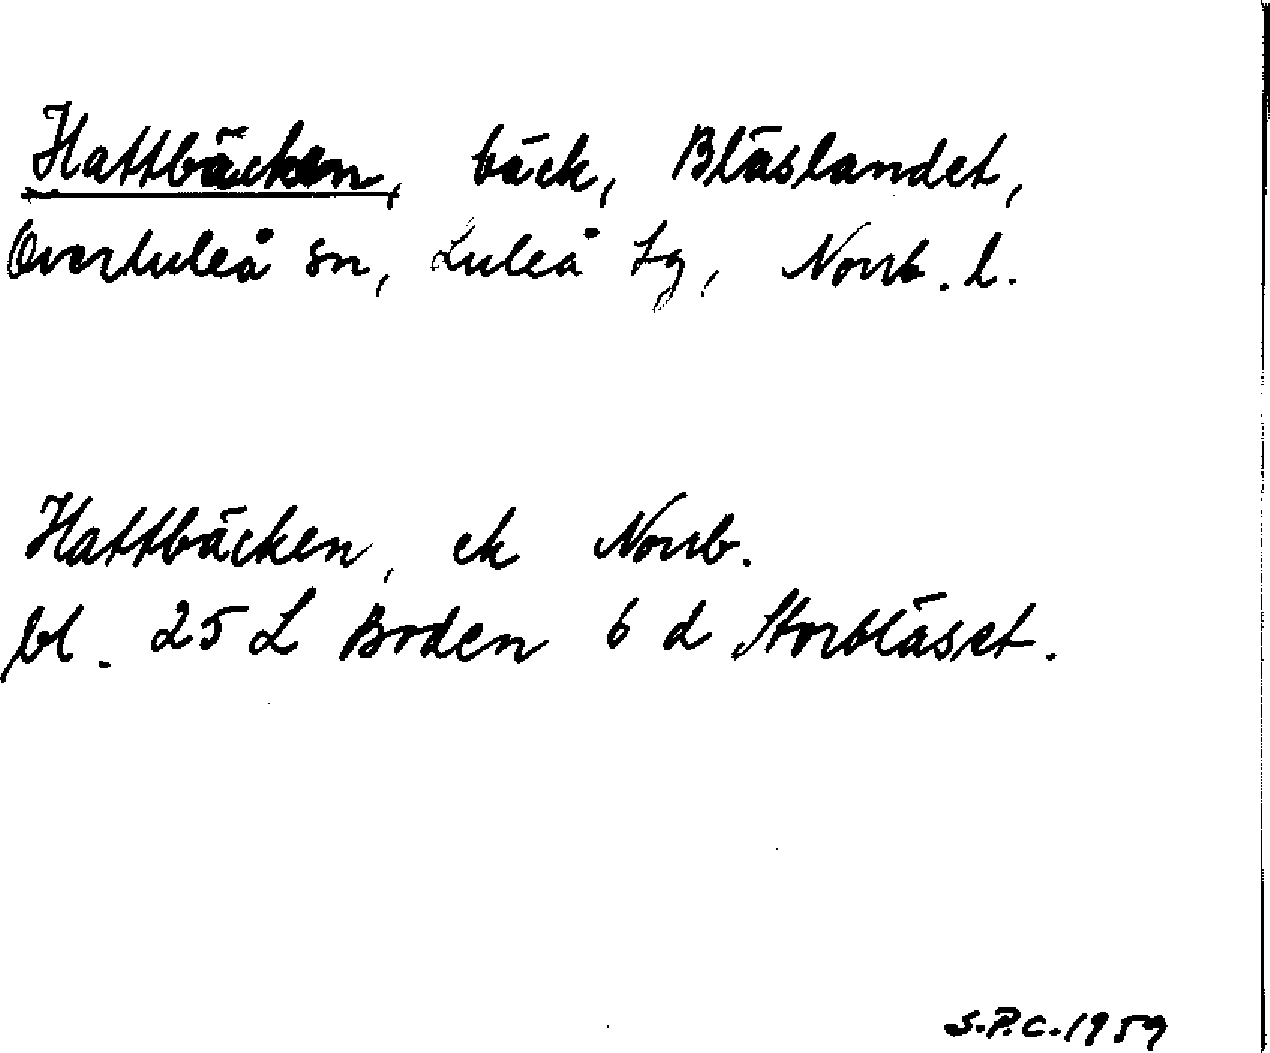 Hattbäcken, bäck, Bläslandet,
Överluleå sn, Luleå tg, Norrb. l.
Hattbäcken, ek Norrb.
bl. 25 L Boden 6 d Storbläset.
S.P.C. 1959